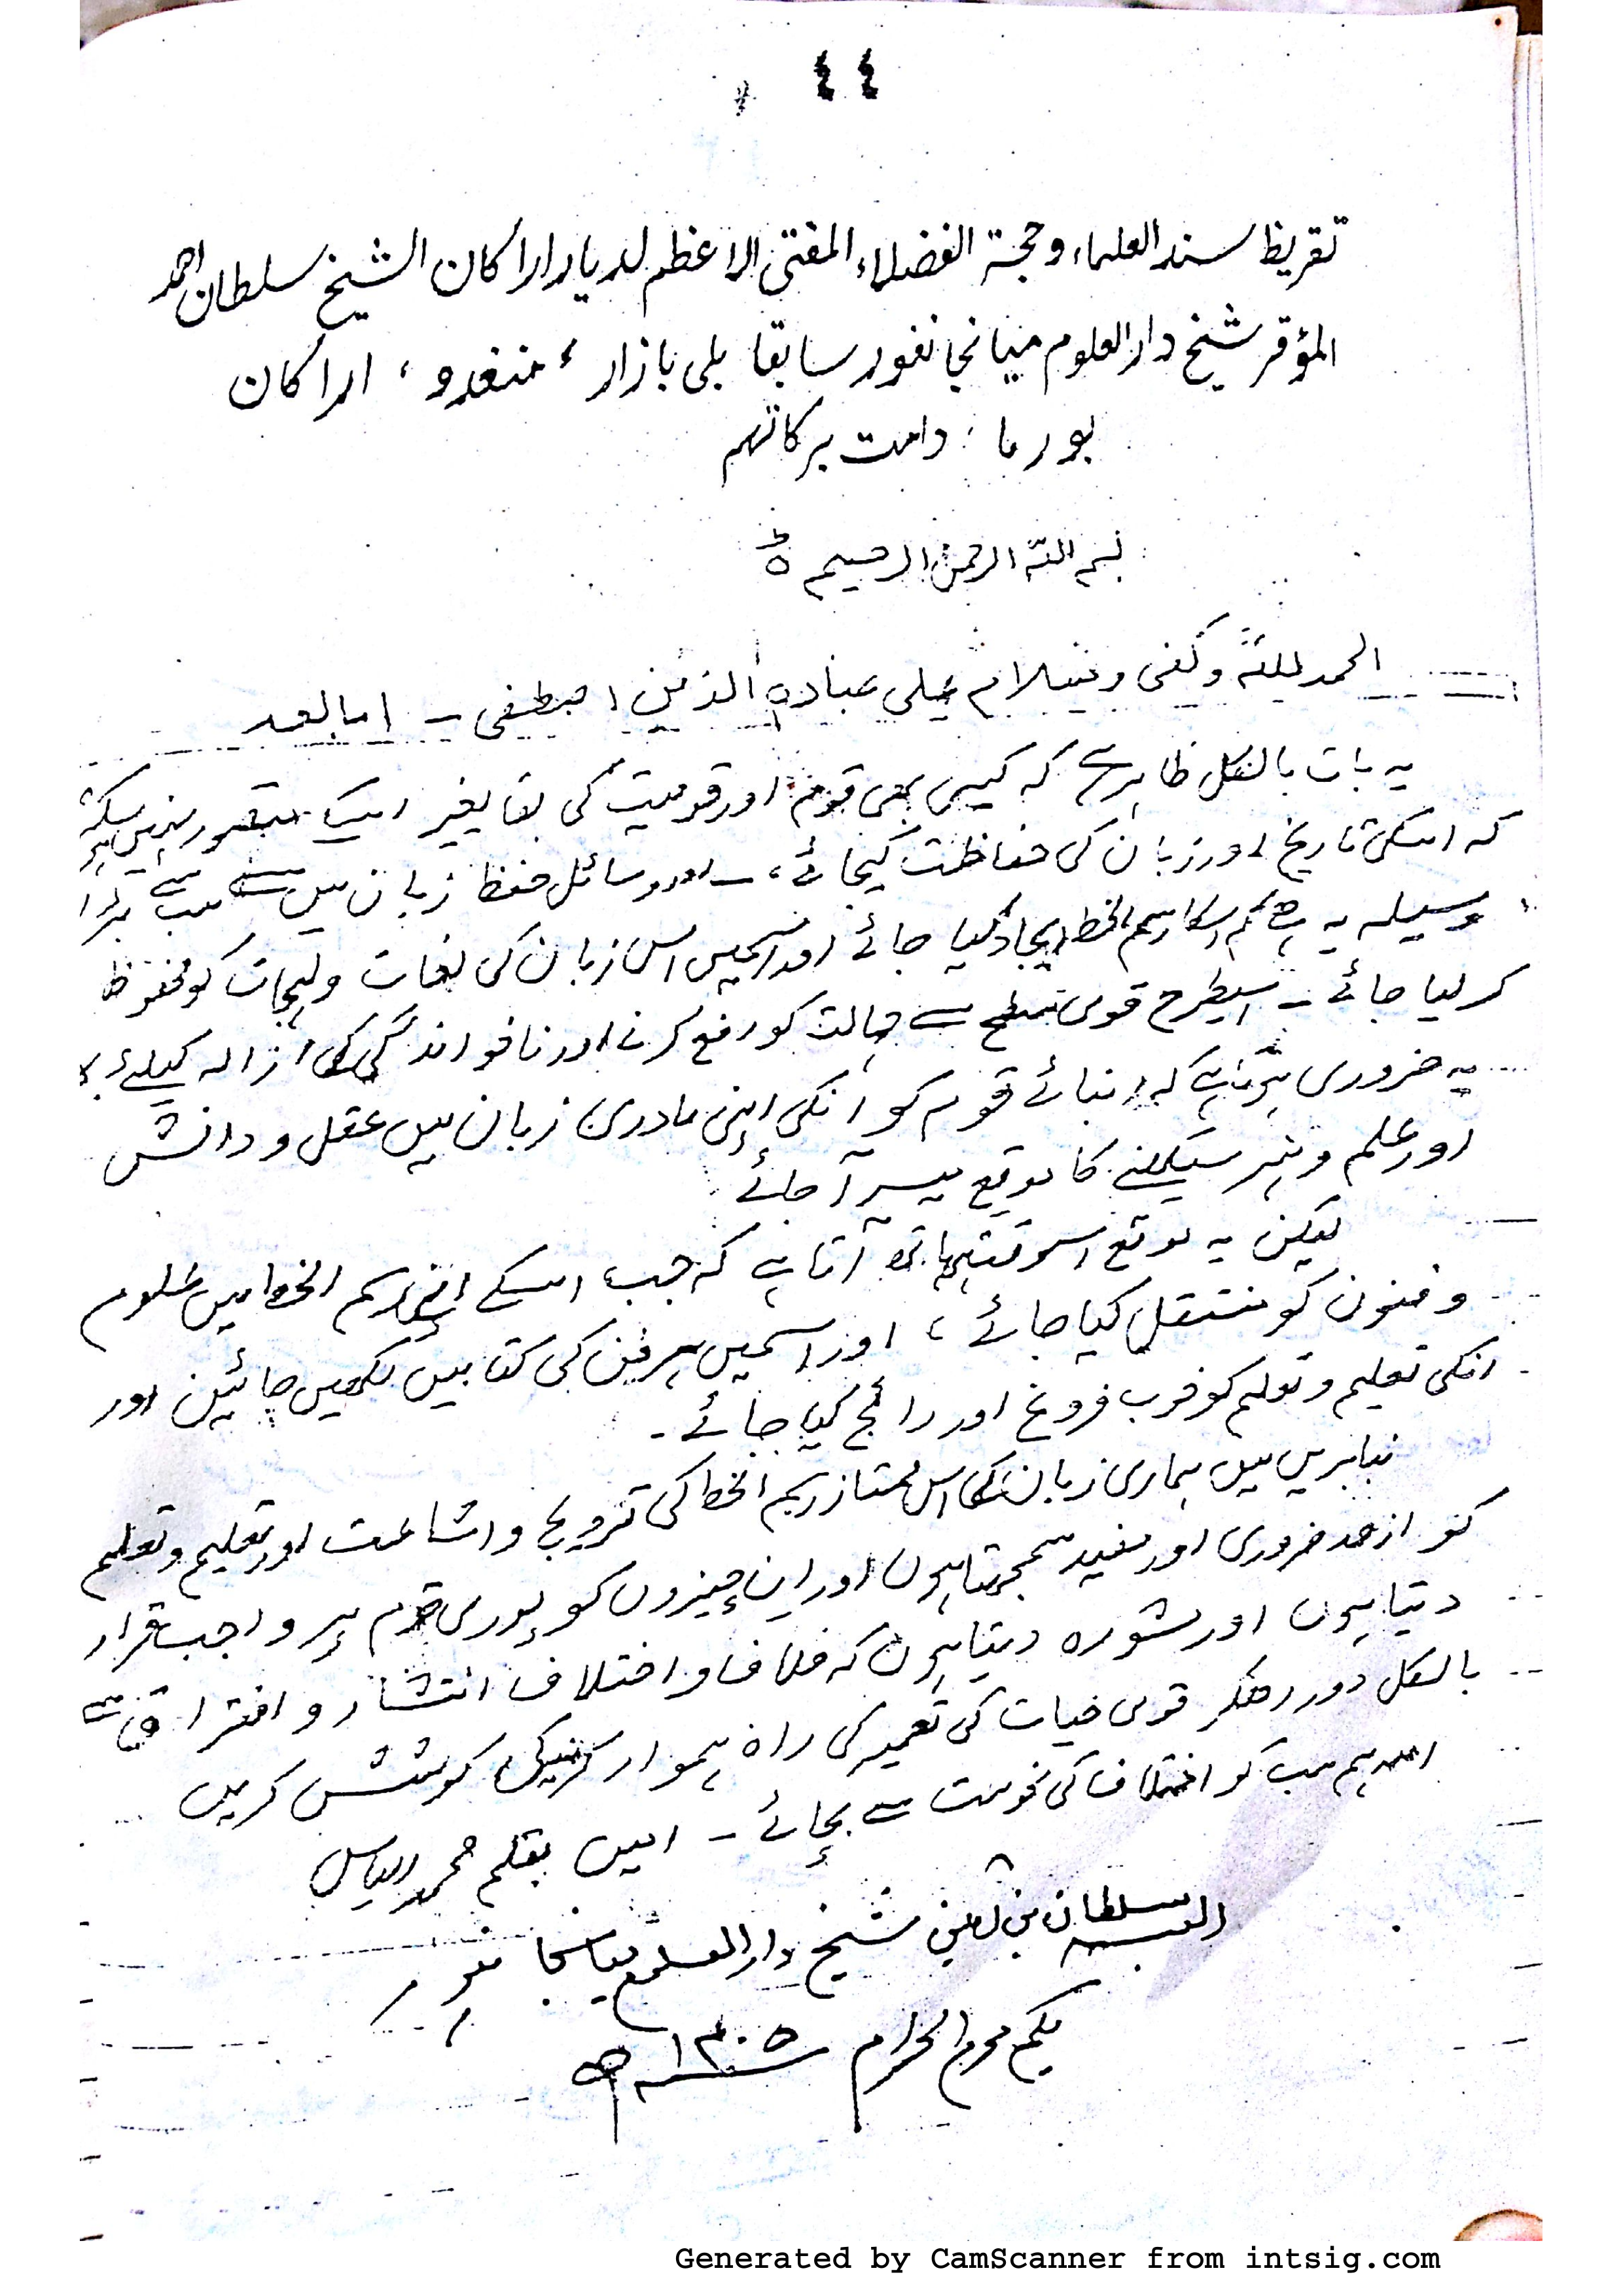 ٤٤
تقریظ سند العلماء وحجة الفضلاء المفتی الاعظم لدیار اراکان الشیخ سلطان احمد
المؤقر شیخ دار العلوم میانجانفور سابقا بلی بازار ، منغدو ، اراکان
بورما ، دامت برکاتهم
بسم اللہ الرحمن الرحیم ٥
الحمد للہ وکفی وسلام علی عبادہ الذین اصطفی ۔ اما بعد
یہ بات بالکل ظاہر ہے کہ کیسی بھی قوم اور قومیت کی بقا بغیر اسکے متصور نہیں ہو سکتی
کہ اسکی تاریخ اور زبان کی حفاظت کیجائے ، اور وسائل حفظ زبان میں سے سب سے بڑا
وسیلہ یہ ہے کہ اسکا رسم الخط ایجاد کیا جائے اور اسمیں اس زبان کی لغات ولہجات کو محفوظ
کر لیا جائے ۔ اسیطرح قومی سطح سے جہالت کو رفع کرنے اور ناخواندگی کی ازالہ کیلئے
یہ ضروری ہوتا ہے کہ ابنائے قوم کو انکی اپنی مادری زبان میں عقل و دانش
اور علم وہنر سیکھنے کا موقع میسر آ جائے
لیکن یہ موقع اسوقت ہاتھ آتا ہے کہ جب اسکے اپنی رسم الخط میں علوم
وفنون کو منتقل کیا جائے ، اور اسمیں ہر فن کی کتابیں لکھیں جائیں اور
انکی تعلیم وتعلم کو خوب فروغ اور رائج کیا جائے ۔
بنابریں میں ہماری زبان کی اس ممتاز رسم الخط کی ترویج واشاعت اور تعلیم وتعلم
کو ازحد ضروری اور مفید سمجھتا ہوں اور ان چیزوں کو پوری قوم پر واجب قرار
دیتا ہوں اور مشورہ دیتا ہوں کہ خلاف واختلاف انتشار و افتراق سے
بالکل دور رھکر قومی حیات کی تعمیر کی راہ ہموار کرنیکی کوشش کریں
اللہ ہم سب کو اختلاف کی نحوست سے بچائے ۔ امین بقلم محمد الیاس
العبد سلطان بن شیخ دار العلوم میانجانفور
یکم محرم الحرام ١٤٠٥ھ
Generated by CamScanner from intsig.com